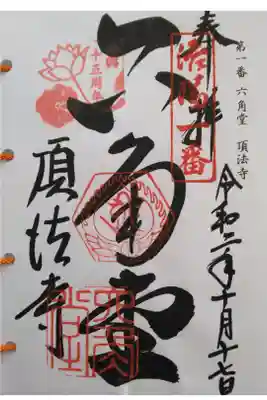 第一番 六角堂 頂法寺
奉拝
令和二年十月十七日
洛陽一番
六角堂
十五周年
頂法寺
六角堂